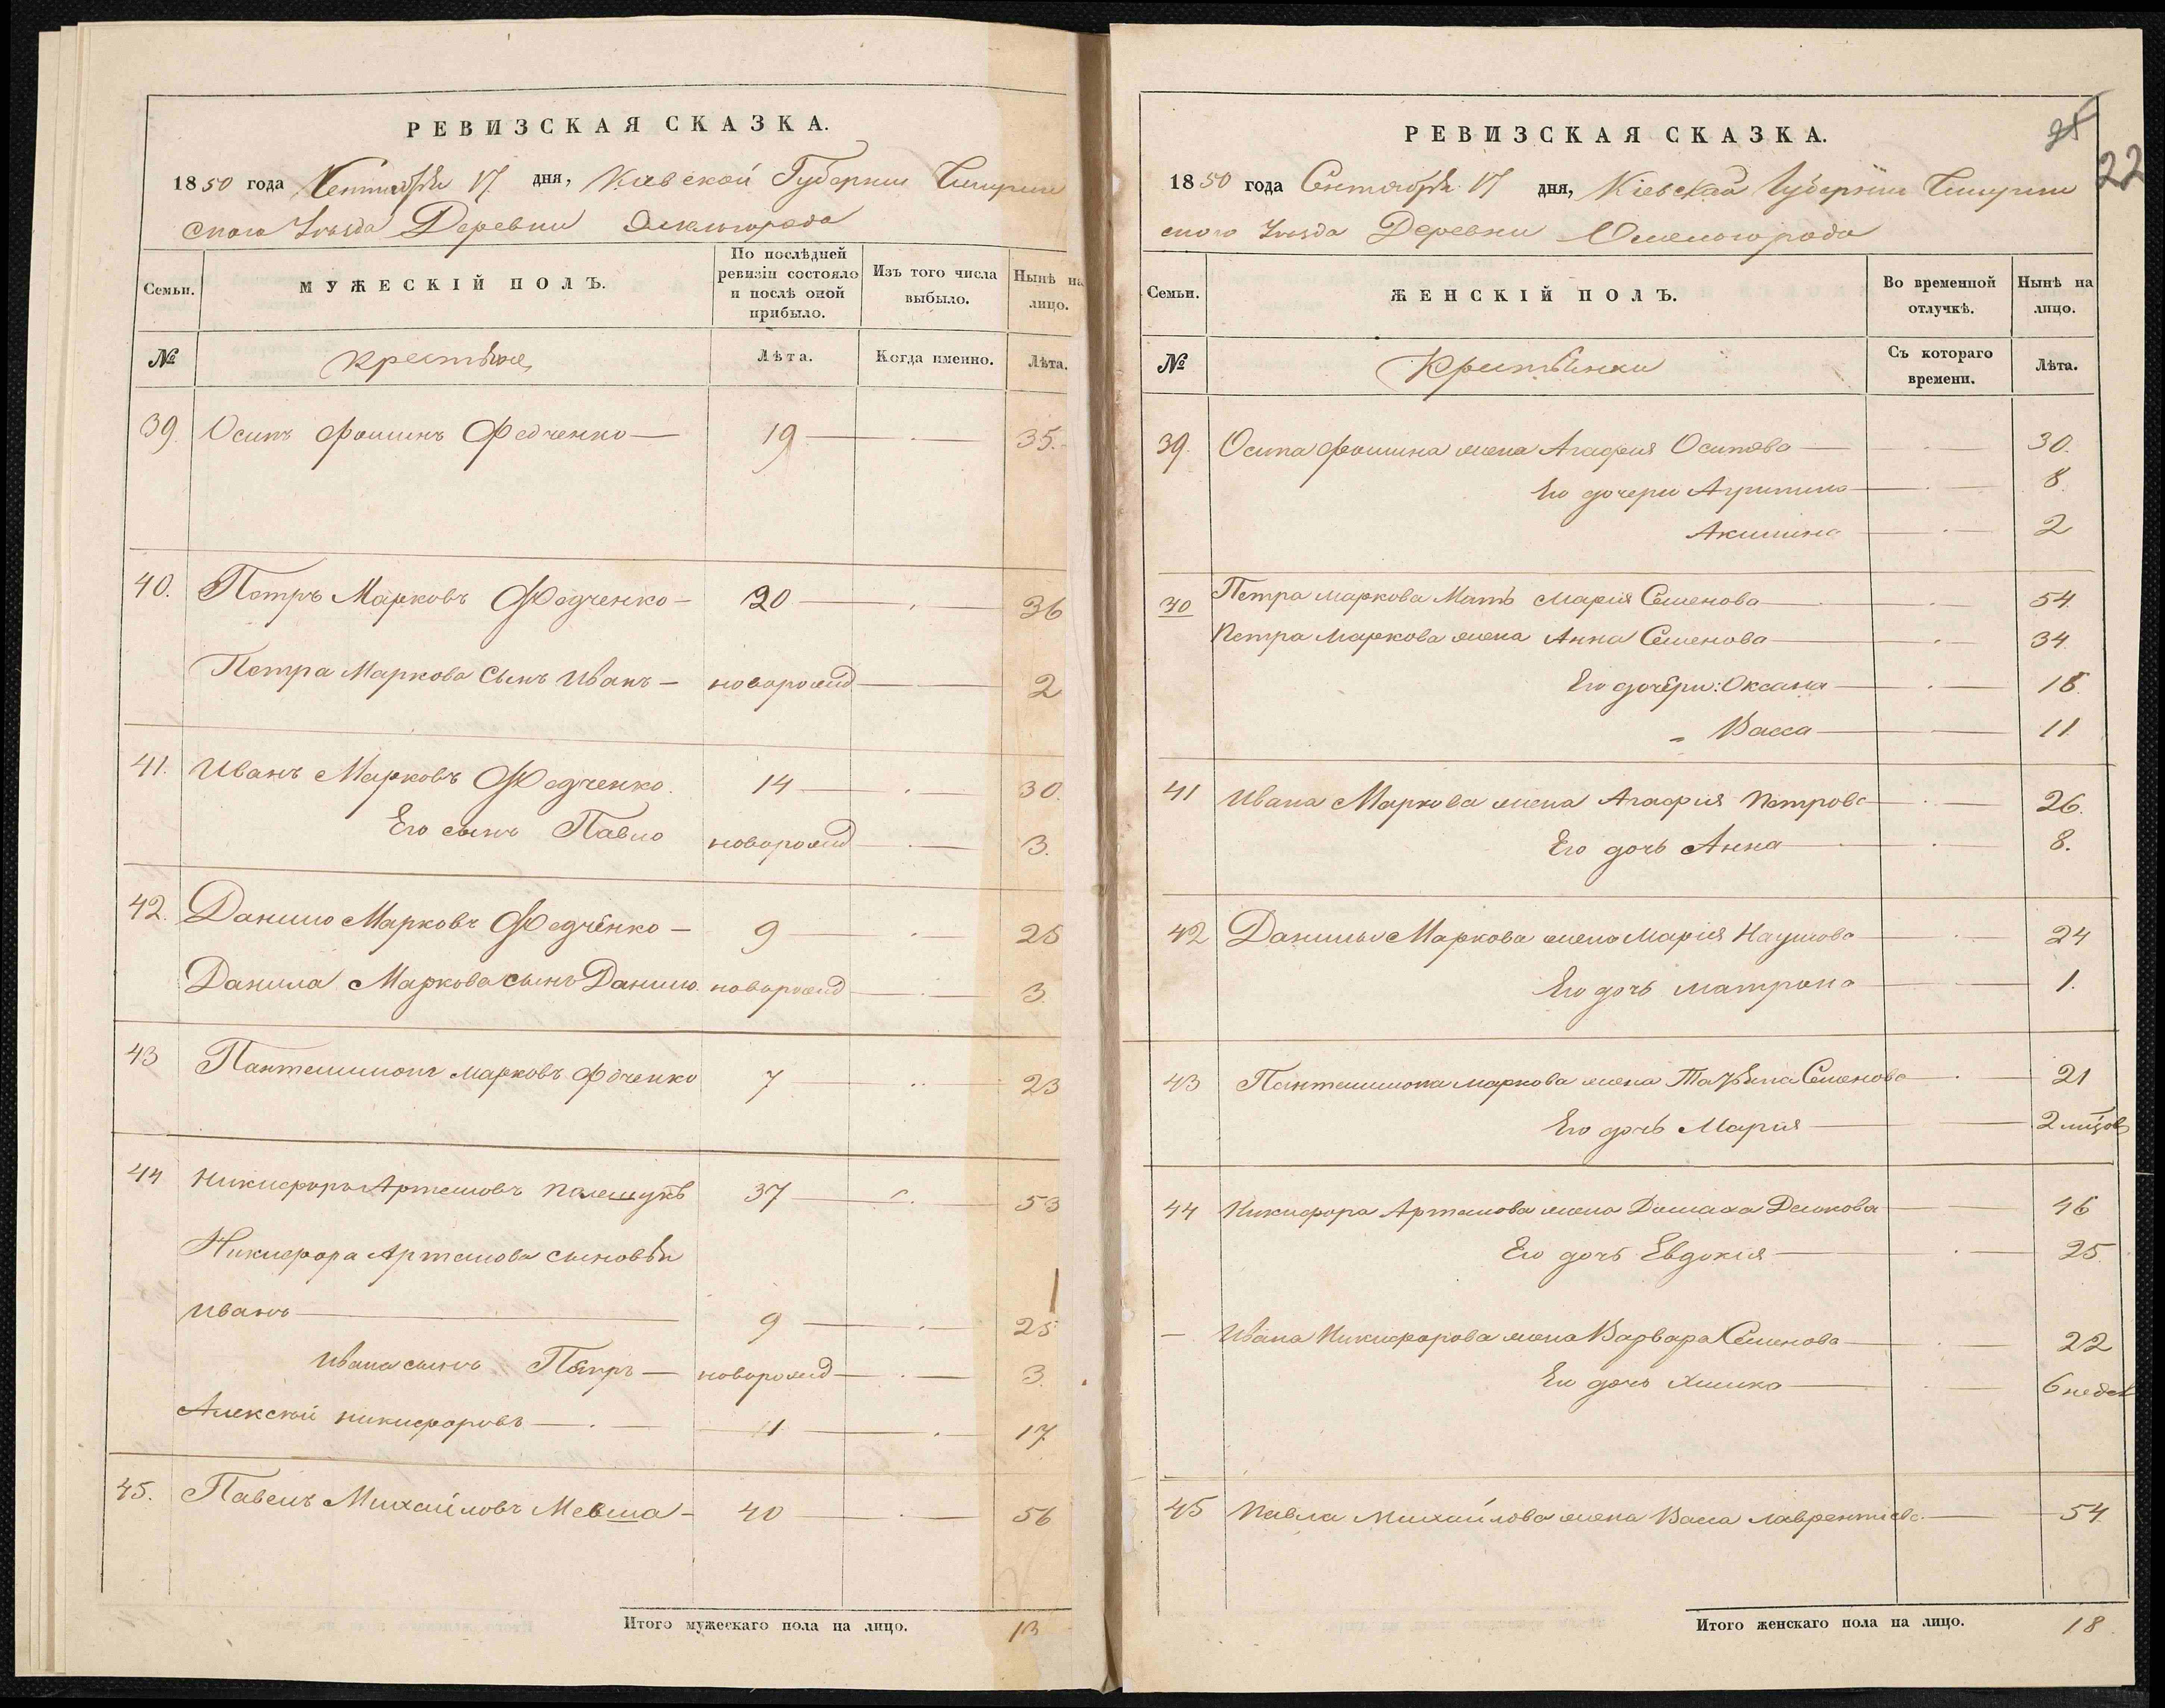 РЕВИЗСКАЯ СКАЗКА.
1850 года Сентября 17 дня, Киевской Губернии Чигрин
ского Уѣзда Деревни
Семьи.
МУЖЕСКІЙ ПОЛЪ.
По послѣдней ревизіи состояло и послѣ оной прибыло.
Изъ того числа выбыло.
Нынѣ на лицо.
№
Крестьяне
Лѣта.
Когда именно.
Лѣта.
39. Осипъ Фоминъ Федченко — 19 — 35.
40. Петръ Марковъ Федченко — 20 — 36
Петра Маркова Сынъ Иванъ — новорожд — 2
41. Иванъ Марковъ Федченко. 14 — 30.
Его сынъ Павло новорожд — 3.
42. Данило Марковъ Федченко — 9 — 25
Данила Маркова сынъ Данило новорожд — 3
43 Пантелимонъ Марковъ Фдченко 7 — 23
44 Никифоръ Артемовъ Полещукъ 37 — 53
Никифора Артемова сыновьи
Иванъ — 9 — 25
Ивана сынъ Петръ — новорожд — 3.
Алексѣй Никифоровъ — 1 — 17
45. Павелъ Михайловъ Мевша — 40 — 56
Итого мужескаго пола на лицо. 13
РЕВИЗСКАЯ СКАЗКА.
25
22
1850 года Сентября 17 дня, Кіевской Губерніи Чигрин
ского Уѣзда Деревни
Семьи.
ЖЕНСКІЙ ПОЛЪ.
Во временной отлучкѣ.
Нынѣ на лицо.
№
Крестьянки
Съ котораго времени.
Лѣта.
39. Осипа Фомина жена Агафия Осипова — 30.
Его дочери Агрипина — 8.
Акилина — 2
40 Петра Маркова Мать Мария Семенова — 54.
Петра Маркова жена Анна Семенова — 34.
Его дочери: Оксана — 18.
„ Васса — 11
41 Ивана Маркова жена Агафия Петрова — 26.
Его дочь Анна — 8.
42 Данилы Маркова жена Мария Наумова — 24
Его дочь Матрона — 1.
43 Пантелимона Маркова жена Татьяна Семенова — 21
Его дочь Мария — 2
44 Никифора Артемова жена Домаха Демкова — 46
Его дочь Евдокия — 25.
— Ивана Никифорова жена Варвара Семенова — 22
Его дочь Химка — 6 недель
45 Павла Михайлова жена Васса Лаврентиева — 54.
Итого женскаго пола на лицо. 18.